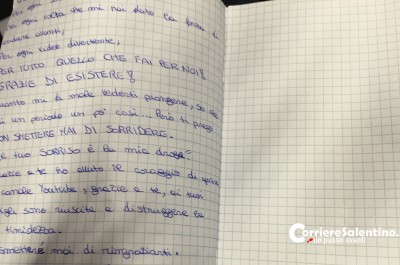 ogni volta che mi hai dato la forza di
andare avanti,
ogni video divertente,
PER TUTTO QUELLO CHE FAI PER NOI!
GRAZIE DI ESISTERE!
quanto mi fa male vederti piangere, so che
un periodo un po' così... Però ti prego
NON SMETTERE MAI DI SORRIDERE.
tuo SORRISO è la mia droga!
te ho avuto il coraggio di aprire
canale Youtube, grazie a te, ai tuoi
sono riuscita a distruggere la
timidezza.
smetterò mai di ringraziarti.
CorriereSalentino.it
un passo avanti